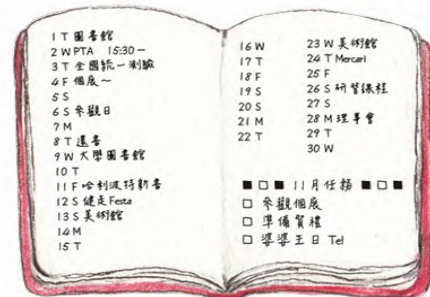 1 T 圖書館
2 W PTA 15:30－
3 T 全國統一測驗
4 F 個展～
5 S
6 S 參觀日
7 M
8 T 還書
9 W 大學圖書館
10 T
11 F 哈利波特新書
12 S 健走 Festa
13 S 美術館
14 M
15 T
16 W
17 T
18 F
19 S
20 S
21 M
22 T
23 W 美術館
24 T Mercari
25 F
26 S 研習課程
27 S
28 M 理事會
29 T
30 W
■□■ 11月任務 ■□■
□ 參觀個展
□ 準備賀禮
□ 婆婆生日 Tel